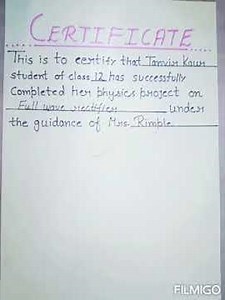 CERTIFICATE
This is to certify that Tanvir Kaur
student of class 12 has successfully
Completed her physics project on
Full wave rectifier under
the guidance of Mrs. Rimple
FILMIGO